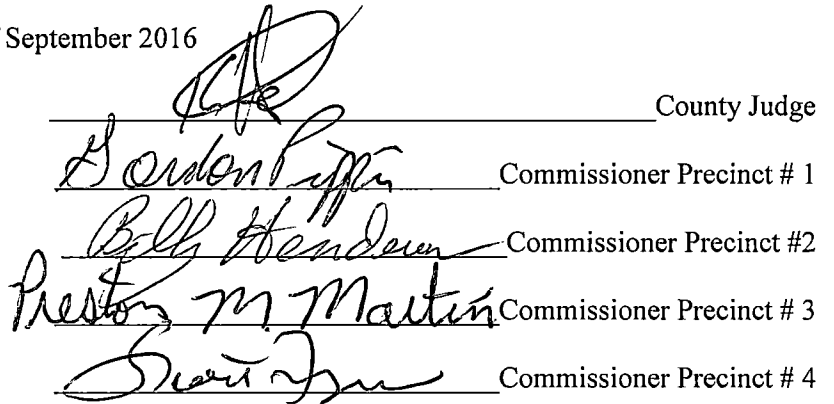 September 2016
County Judge
Gordon Pippin Commissioner Precinct # 1
Henderson Commissioner Precinct #2
Preston M. Martin Commissioner Precinct # 3
Commissioner Precinct # 4